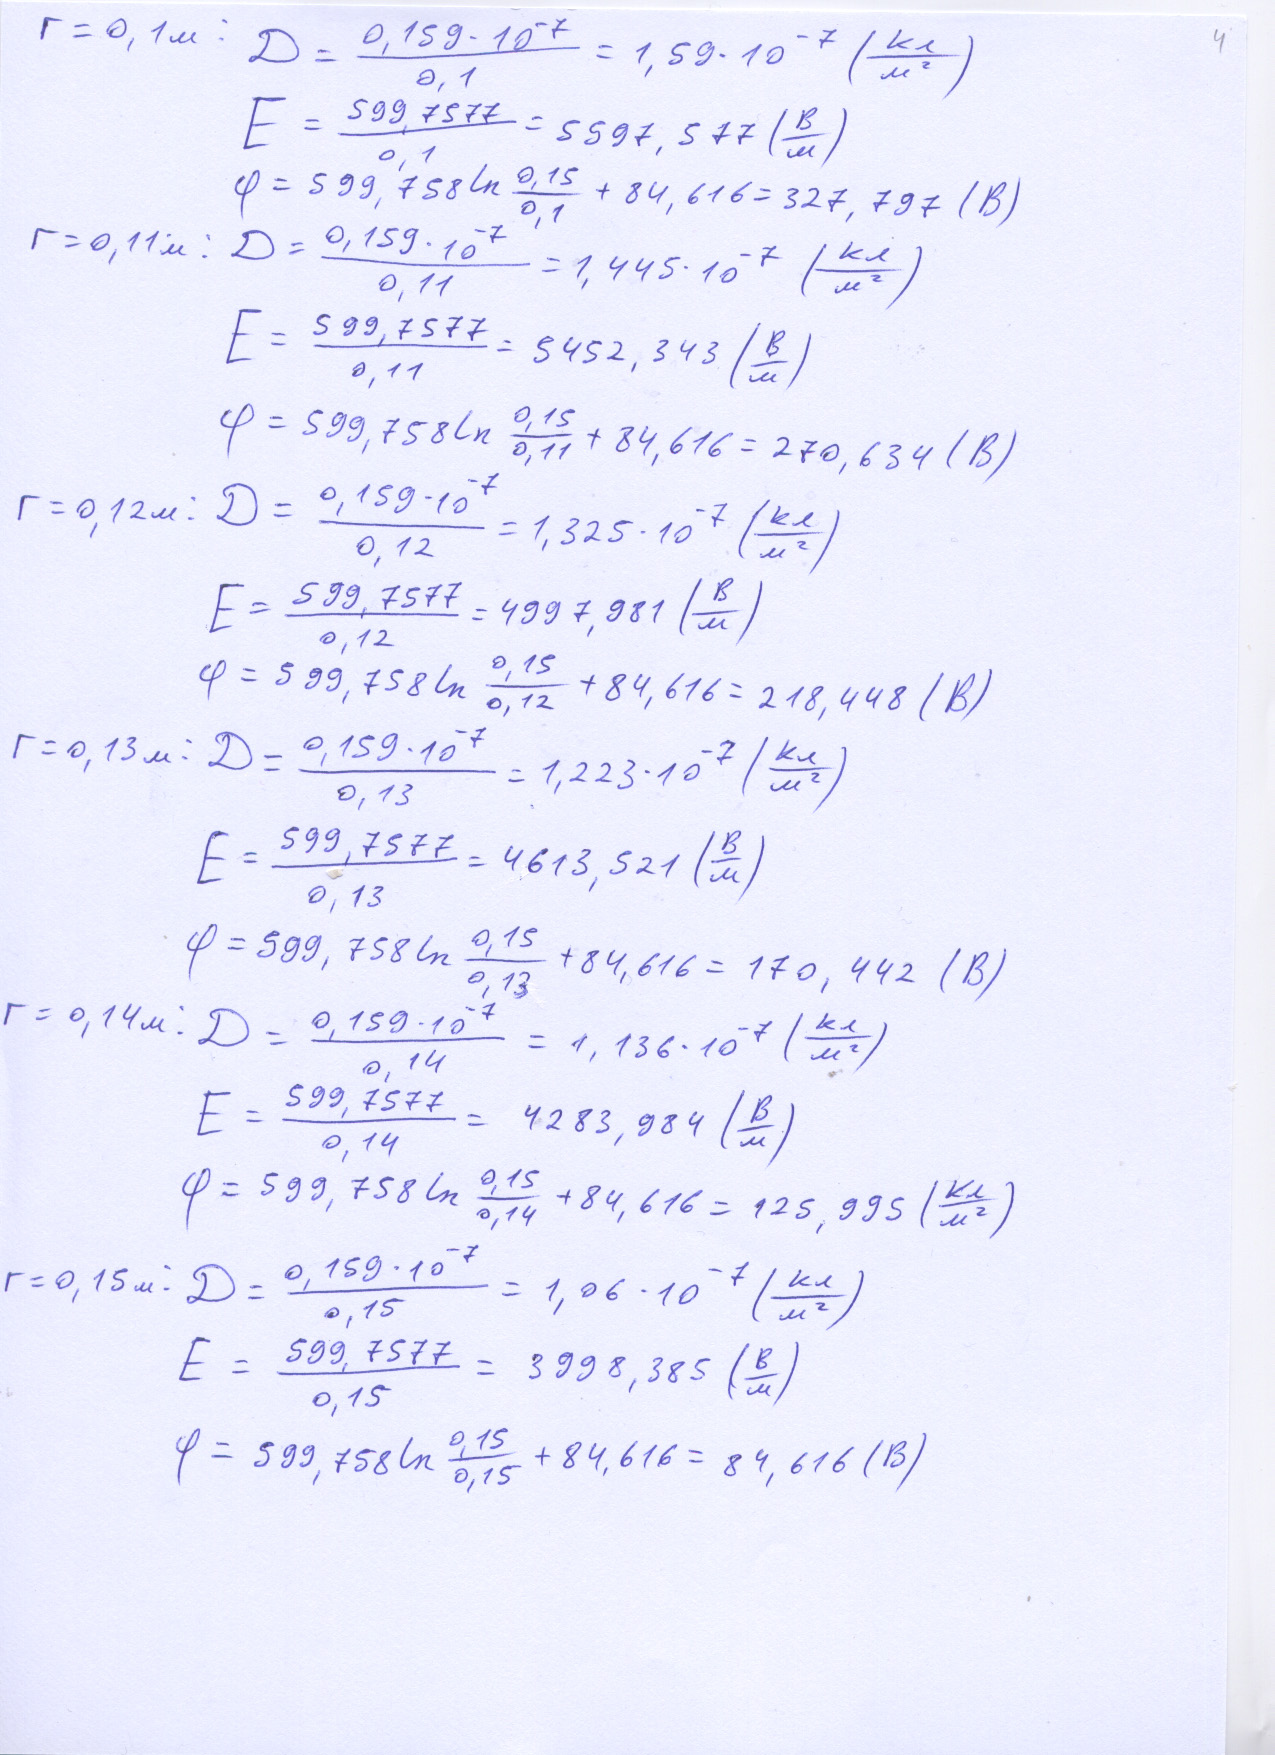 4
r = 0,1м: D = 0,159·10⁻⁷ / 0,1 = 1,59·10⁻⁷ (Кл/м²)
E = 599,7577 / 0,1 = 5597,577 (В/м)
φ = 599,758 ln 0,15/0,1 + 84,616 = 327,797 (В)
r = 0,11м: D = 0,159·10⁻⁷ / 0,11 = 1,445·10⁻⁷ (Кл/м²)
E = 599,7577 / 0,11 = 5452,343 (В/м)
φ = 599,758 ln 0,15/0,11 + 84,616 = 270,634 (В)
r = 0,12м: D = 0,159·10⁻⁷ / 0,12 = 1,325·10⁻⁷ (Кл/м²)
E = 599,7577 / 0,12 = 4997,981 (В/м)
φ = 599,758 ln 0,15/0,12 + 84,616 = 218,448 (В)
r = 0,13м: D = 0,159·10⁻⁷ / 0,13 = 1,223·10⁻⁷ (Кл/м²)
E = 599,7577 / 0,13 = 4613,521 (В/м)
φ = 599,758 ln 0,15/0,13 + 84,616 = 170,442 (В)
r = 0,14м: D = 0,159·10⁻⁷ / 0,14 = 1,136·10⁻⁷ (Кл/м²)
E = 599,7577 / 0,14 = 4283,984 (В/м)
φ = 599,758 ln 0,15/0,14 + 84,616 = 125,995 (Кл/м²)
r = 0,15м: D = 0,159·10⁻⁷ / 0,15 = 1,06·10⁻⁷ (Кл/м²)
E = 599,7577 / 0,15 = 3998,385 (В/м)
φ = 599,758 ln 0,15/0,15 + 84,616 = 84,616 (В)